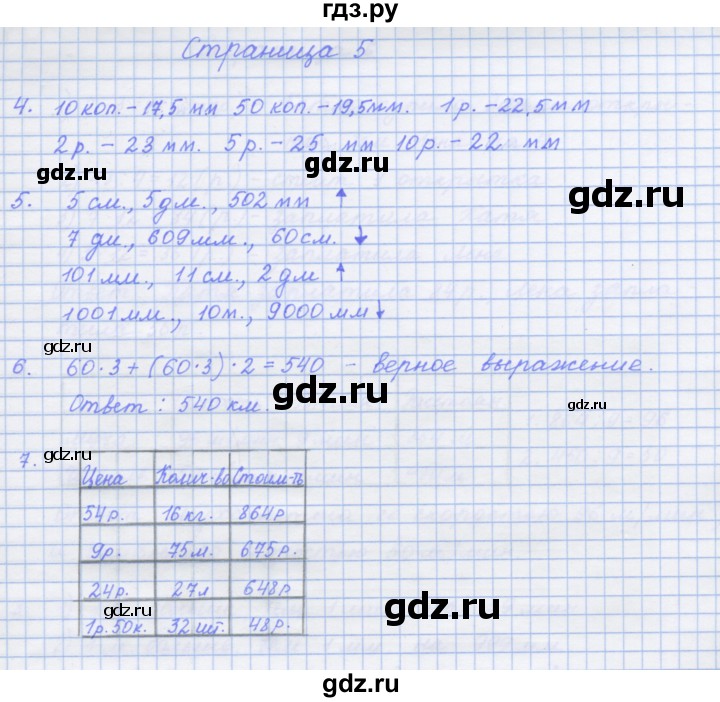 гдз.ру
Страница 5
4. 10 коп. - 17,5 мм 50 коп. - 19,5 мм. 1 р. - 22,5 мм
2 р. - 23 мм. 5 р. - 25 мм 10 р. - 22 мм
gdz.ru gdz.ru
5. 5 см., 5 дм., 502 мм ↑
7 дм., 609 мм., 60 см. ↓
gdz.ru
101 мм., 11 см., 2 дм ↑
1001 мм., 10 м., 9000 мм ↓
gdz.ru
6. 60·3 + (60·3)·2 = 540 - верное выражение.
gdz.ru
Ответ: 540 км.
gdz.ru
7. gdz.ru
Цена Колич-во Стоим-ть
54 р. 16 кг. 864 р
9 р. 75 м. 675 р.
24 р. 27 л 648 р
gdz.ru gdz.ru
1 р. 50 к. 32 шт. 48 р.
gdz.ru